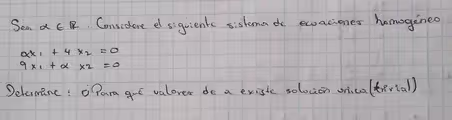 Sea α ∈ ℝ. Considere el siguiente sistema de ecuaciones homogéneo
αx₁ + 4x₂ = 0
9x₁ + αx₂ = 0
Determine: o Para qué valores de a existe solución única (trivial)